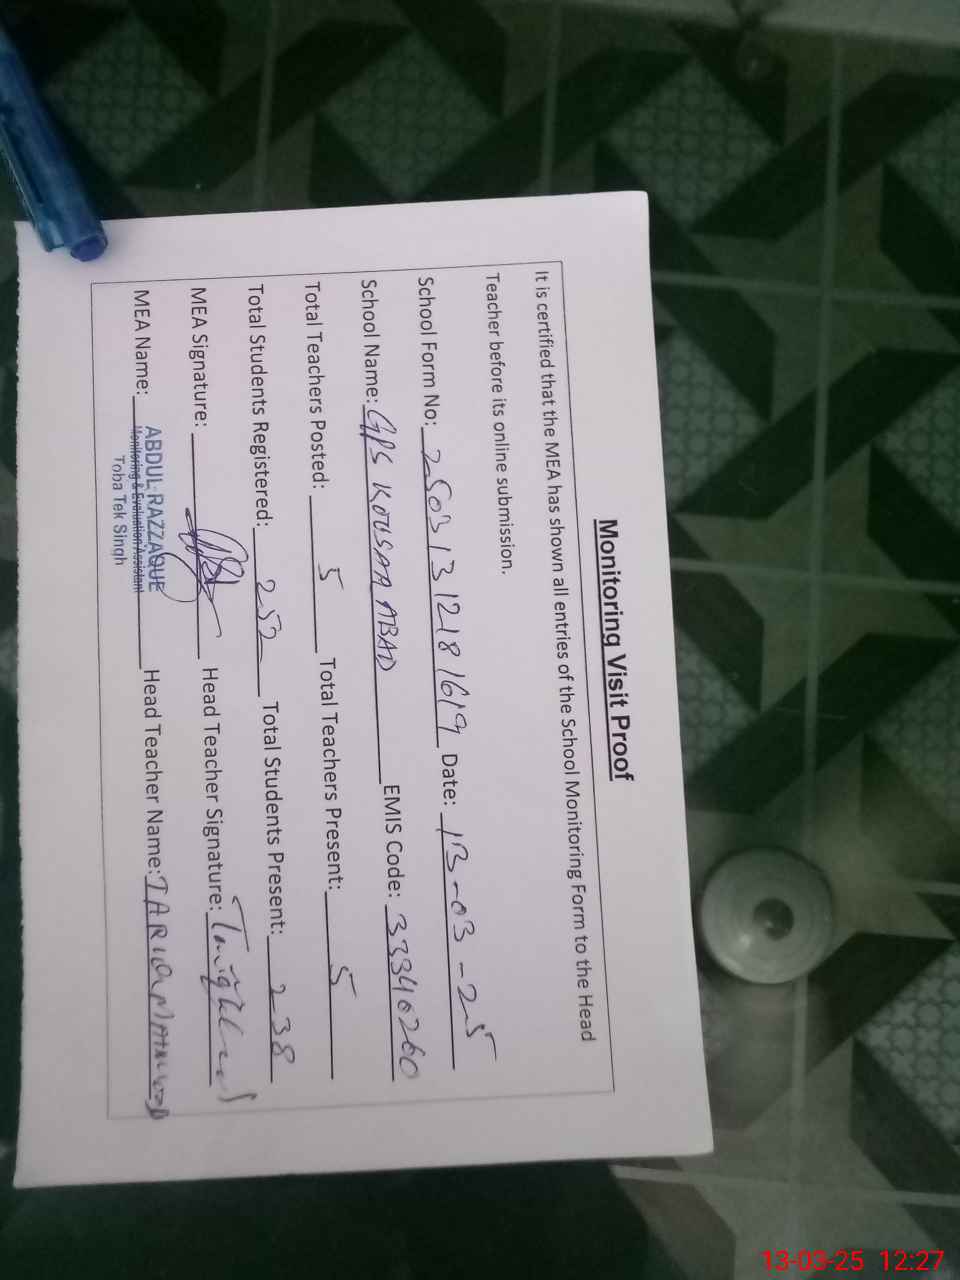 Monitoring Visit Proof
It is certified that the MEA has shown all entries of the School Monitoring Form to the Head
Teacher before its online submission.
School Form No: 25031312181619 Date: 13-03-25
School Name: GPS KOUSAR ABAD EMIS Code: 33340260
Total Teachers Posted: 5 Total Teachers Present: 5
Total Students Registered: 252 Total Students Present: 238
MEA Signature: Head Teacher Signature:
MEA Name: ABDUL RAZZAQUE Head Teacher Name: TARIQ MAHMOOD
Monitoring & Evaluation Assistant
Toba Tek Singh
13-03-25 12:27